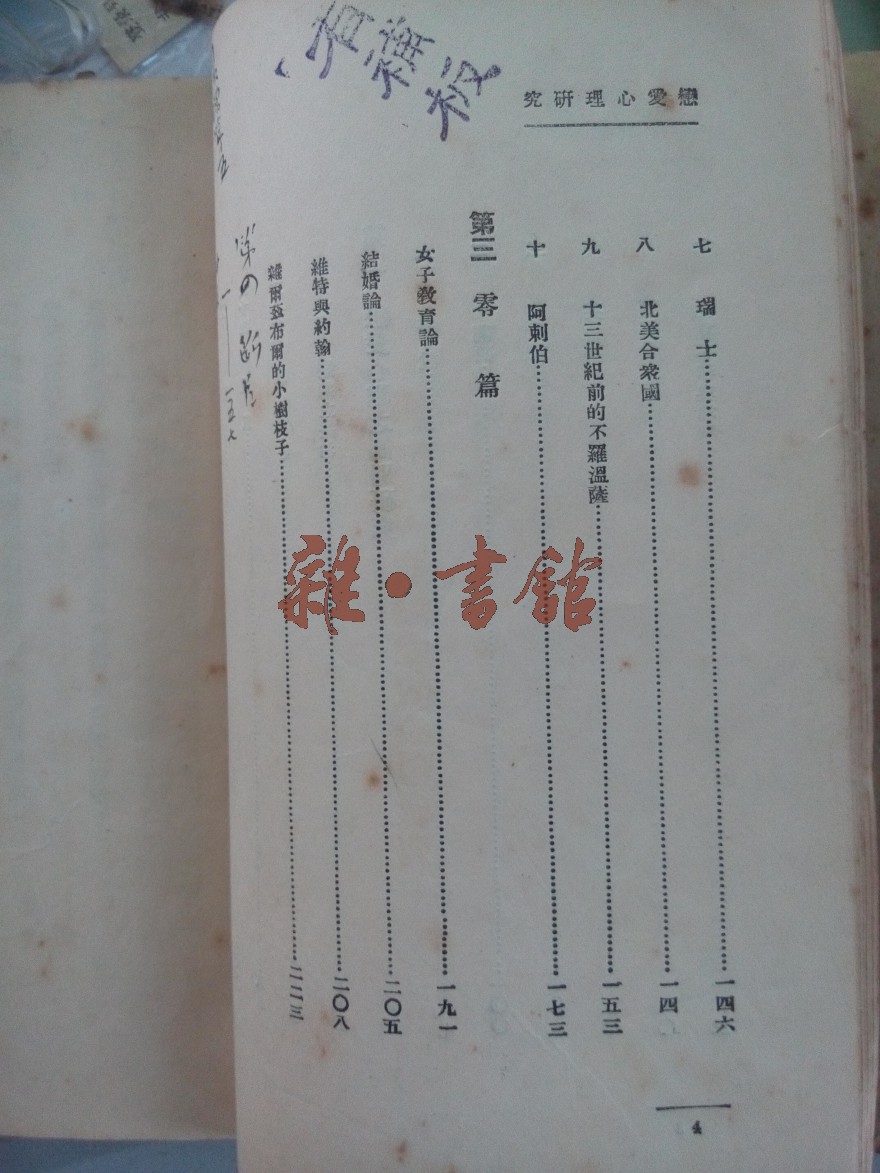 戀愛心理研究
七　瑞士……一四六
八　北美合衆國……一四
九　十三世紀前的不羅溫薩……一五三
十　阿剌伯……一七三
第三　零篇
女子敎育論……一九一
結婚論……二〇五
維特與約翰……二〇八
爾茲布爾的小樹枝子……二一三
4
樣板
雜·書館